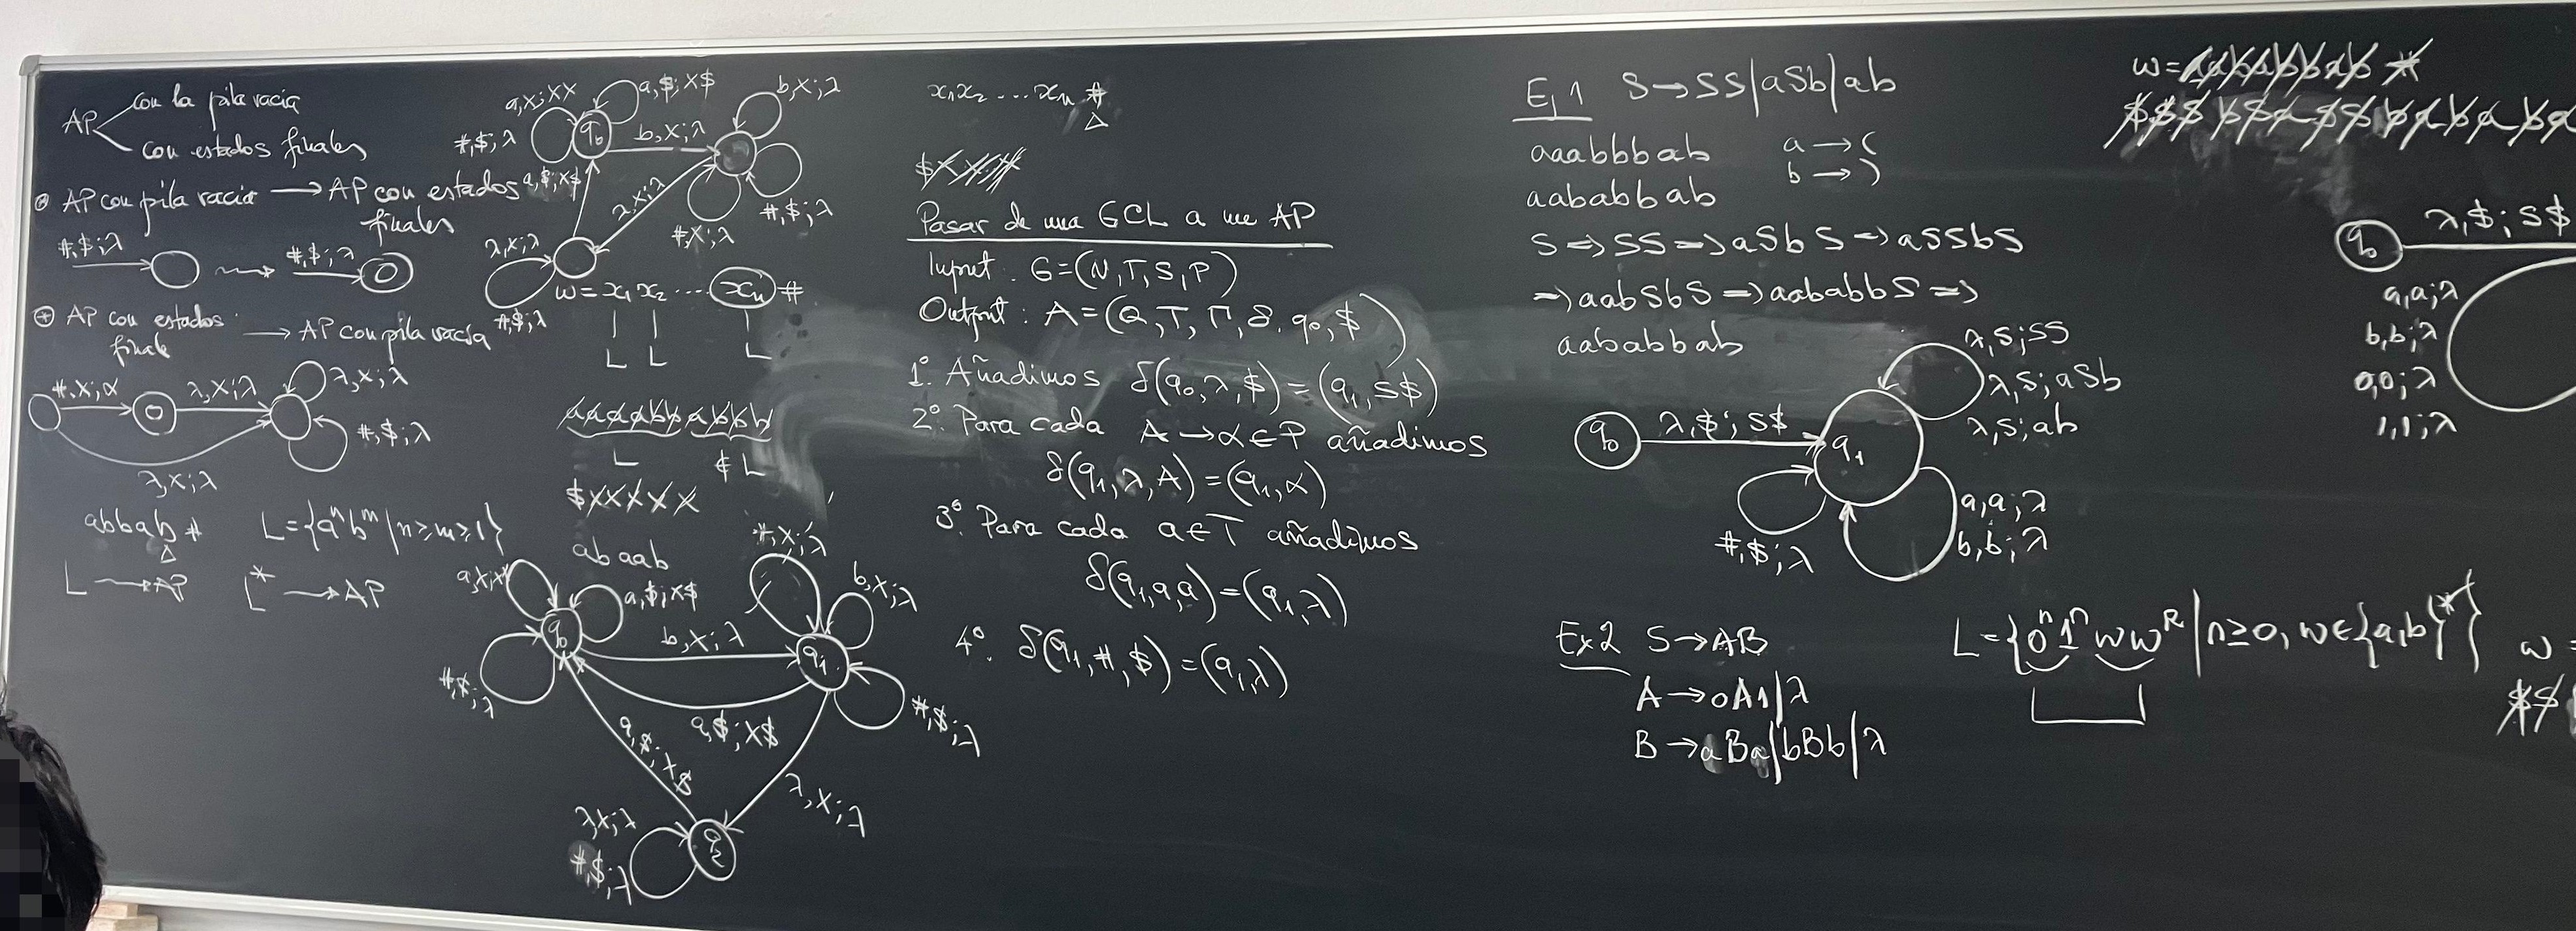 AP con la pila vacía
con estados finales
AP con pila vacía → AP con estados
finales
#,$;λ
#,$;λ
AP con estados
finale
→ AP con pila vacía
#,x;α
λ,x;λ
λ,x;λ
#,$;λ
λ,x;λ
abbab#
Δ
L={aⁿbᵐ|n≥m≥1}
L → AP
L* → AP
a,x;xx
a,$;x$
#,$;λ
q₀
b,x;λ
b,x;λ
a,$;x$
λ,x;λ
#,x;λ
#,$;λ
λ,x;λ
#,$;λ
w=x₁x₂....xₙ#
L L L
aaaabbabbb
L ∉L
$xxxxx
abaab
a,x;x
a,$;x$
#,x;λ
b,x;λ
q₀
b,x;λ
q₁
#,$;λ
a,$;x$
#,$;λ
a,$;x$
λ,x;λ
λ,x;λ
q₂
#,$;λ
x₁x₂...xₙ#
Δ
Pasar de una GCL a une AP
Input: G=(N,T,S,P)
Output: A=(Q,T,Γ,δ,q₀,$)
1º. Añadimos δ(q₀,λ,$)=(q₁,S$)
2º. Para cada A→α∈P añadimos
δ(q₁,λ,A)=(q₁,α)
3º. Para cada a∈T añadimos
δ(q₁,a,a)=(q₁,λ)
4º. δ(q₁,#,$)=(q₁,λ)
Ej 1 S→SS|aSb|ab
aaabbbab a→(
b→)
aababbab
S⇒SS⇒aSbS⇒aSSbS
⇒aabSbS⇒aababbS⇒
aababbab
λ,S;SS
λ,S;aSb
λ,S;ab
q₀
λ,$;S$
q₁
#,$;λ
a,a;λ
b,b;λ
Ex2 S→AB
A→0A1|λ
B→aBa|bBb|λ
L={0ⁿ1ⁿwwᴿ|n≥0,w∈{a,b}*}
w=
q₀
λ,$;S$
a,a;λ
b,b;λ
0,0;λ
1,1;λ
w=